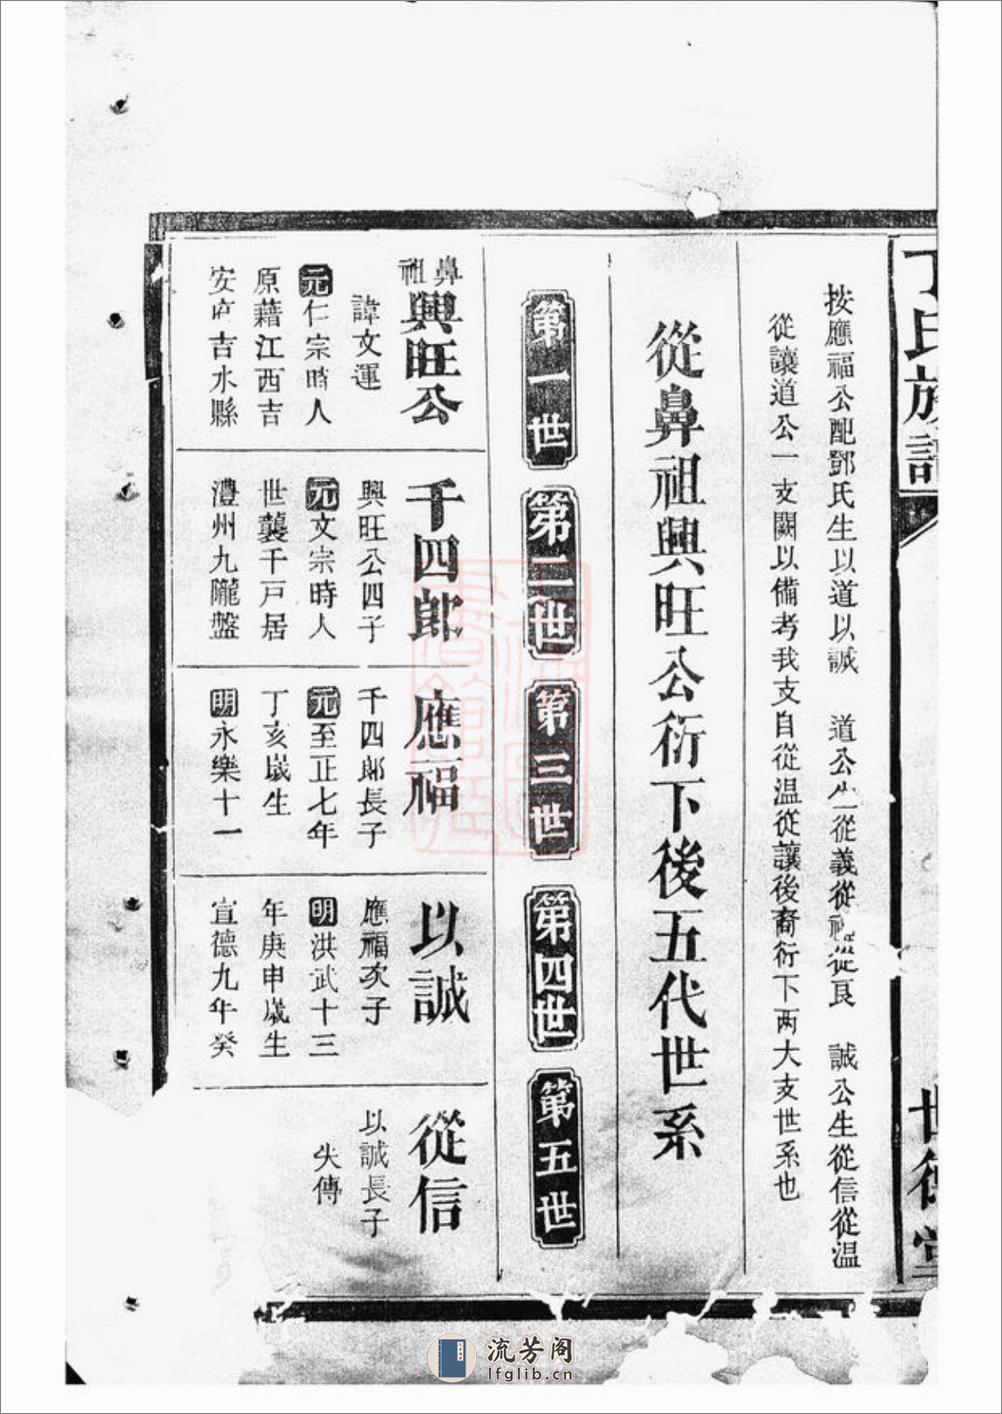 丁氏族譜
世德堂
按應福公配鄧氏生以道以誠 道公生從義從 從良 誠公生從信從溫
從讓道公一支闕以備考我支自從溫從讓後裔衍下兩大支世系也
從鼻祖興旺公衍下後五代世系
第一世
第二世
第三世
第四世
第五世
鼻祖興旺公
諱文運
元仁宗時人
原藉江西吉
安府吉水縣
千四郎
興旺公四子
元文宗時人
世襲千戶居
澧州九隴盤
應福
千四郎長子
元至正七年
丁亥歲生
明永樂十一
以誠
應福次子
明洪武十三
年庚申歲生
宣德九年癸
從信
以誠長子
失傳
流芳阁
lfglib.cn